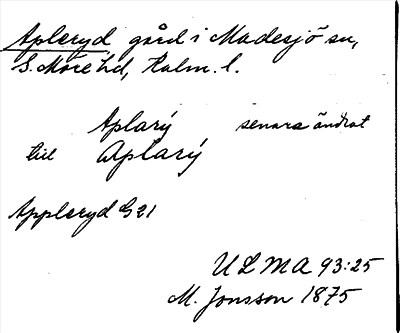 Apleryd, gård i Madesjö sn,
S. Möre hd, Kalm. l.
Aplarÿ senare ändrat
till Aplarÿ
Appleryd G 21
ULMA 93:25
M. Jonsson 1875